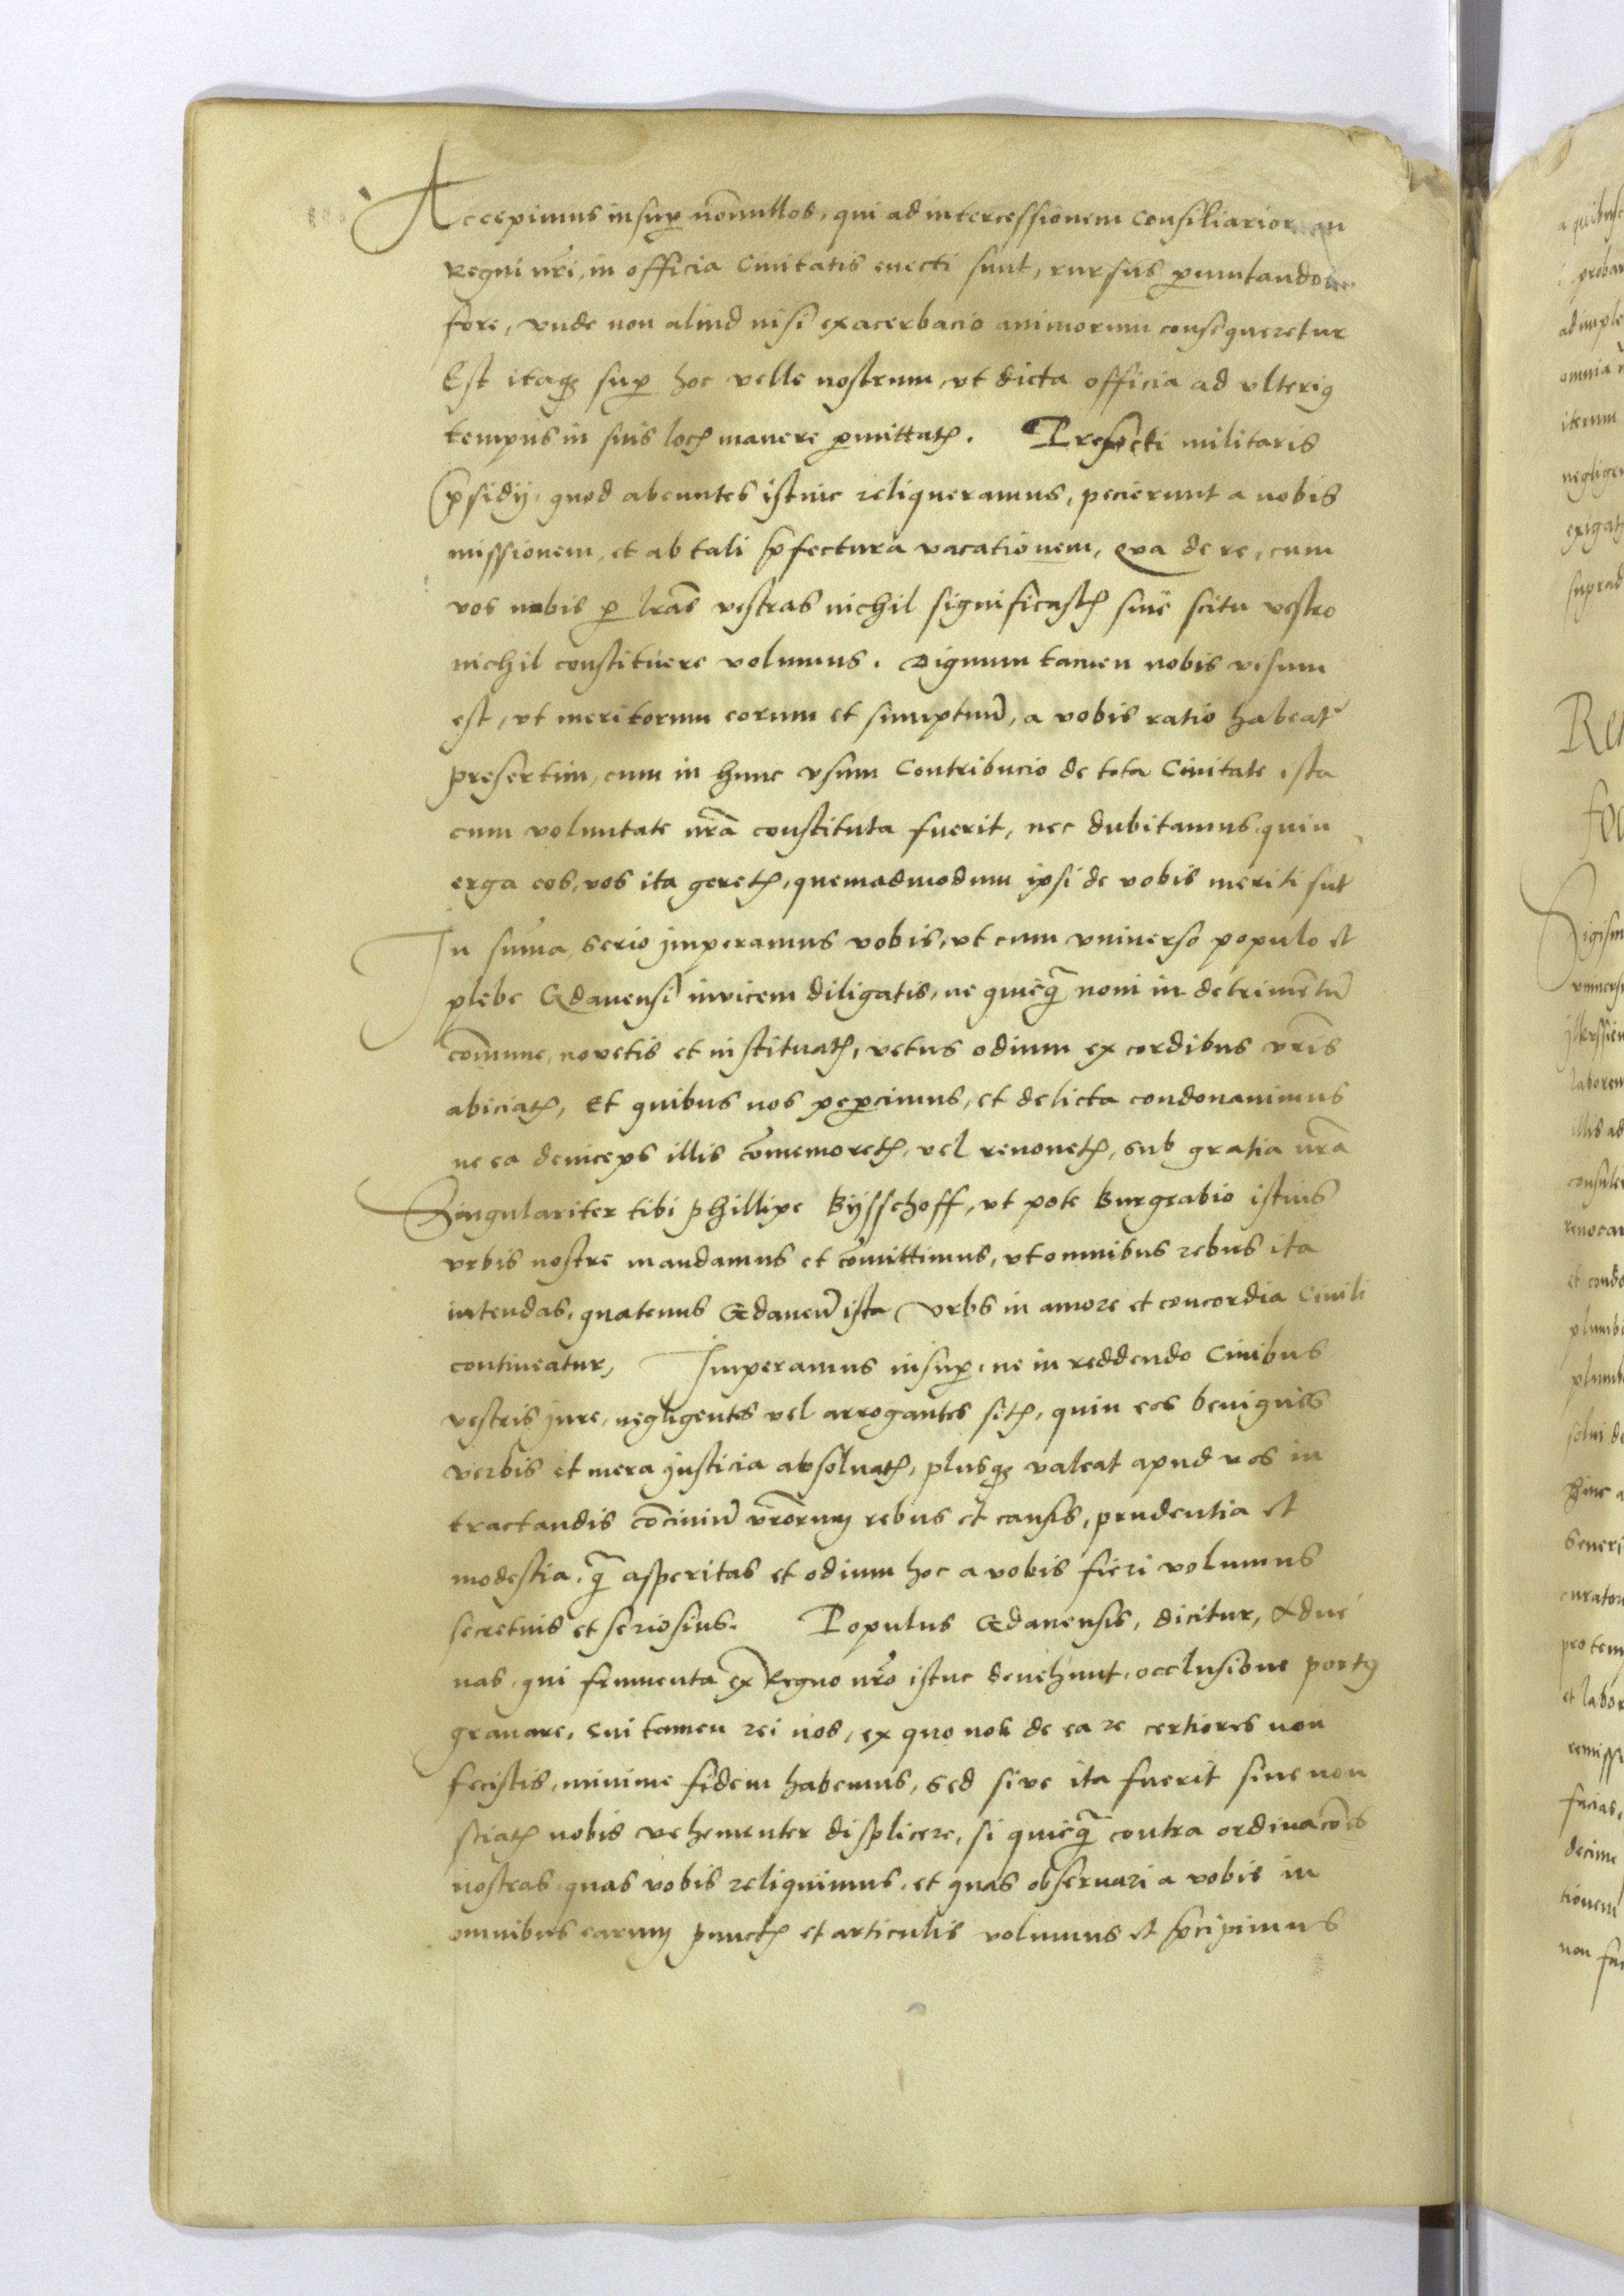 Accepimus insup nōnnullos, qui ad intercessionem Consiliariorum
Regni nri, in officia Civitatis evecti sunt, rursus pmutandos
fore, vnde non aliud nisi exacerbacio animorum consequeretur
Est itaqz sup hoc velle nostrum, vt dicta officia ad vlteriꝯ
tempus in suis locꝭ manere pmittatꝭ. Prefecti militaris
p̄sidij, quod abeuntes istuic reliqueramus, pecierunt a nobis
missionem, et ab tali p̄fectura vacationem, Qua de re, cum
vos nobis p lrās vestras nichil significastꝭ sine scitu vestro
nichil constituere volumus. Dignum tamen nobis visum
est, vt meritorum eorum et sumptuū, a vobis ratio habeatʳ
presertim, cum in hunc vsum Contribucio de tota Civitate ista
cum voluntate nrā constituta fuerit, nec dubitamus, quin
erga eos, vos ita geretꝭ, quemadmodum ipsi de vobis meriti sūt
In sūma, serio jmperamus vobis, vt cum vniverso populo et
plebe Gdanensi invicem diligatis, ne quicq̄ novi in detrimētū
cōmune, novetis et instituatꝭ, vetus odium ex cordibus vrīs
abiciatꝭ, Et quibus nos pepercimus, et delicta condonavimus
ne ea deinceps illis cōmemoretꝭ, vel renovetꝭ, sub gratia nrā
Singulariter tibi Phillipe Bijsschoff, vt pote Burgrabio istius
vrbis nostre mandamus et cōmittimus, vt omnibus rebus ita
intendas, quatenus Gdaneñ ista vrbs in amore et concordia Civili
contineatur, Imperamus insup, ne in reddendo Civibus
vestris jure, negligentes vel arrogantes sitꝭ, quin eos benignis
verbis et mera justicia absoluatꝭ, plusqz valeat apud vos in
tractandis cōciviū vrōrum rebus et causis, prudentia et
modestia, q̄ asperitas et odium hoc a vobis fieri volumus
secretius et seriosius. Populus Gdanensis, dicitur, Adue
nas, qui frumenta ex Regno nrō istuc devehunt, occlusione portꝯ
gravare, Cui tamen rei nos, ex quo nos de ea re certiores non
fecistis, minime fidem habemus, Sed sive ita fuerit sive non
sciatꝭ nobis vehementer displicere, si quicq̄ contra ordinacōes
nostras, quas vobis reliquimus, et quas observari a vobis in
omnibus earum punctꝭ et articulis volumus et p̄cipimus